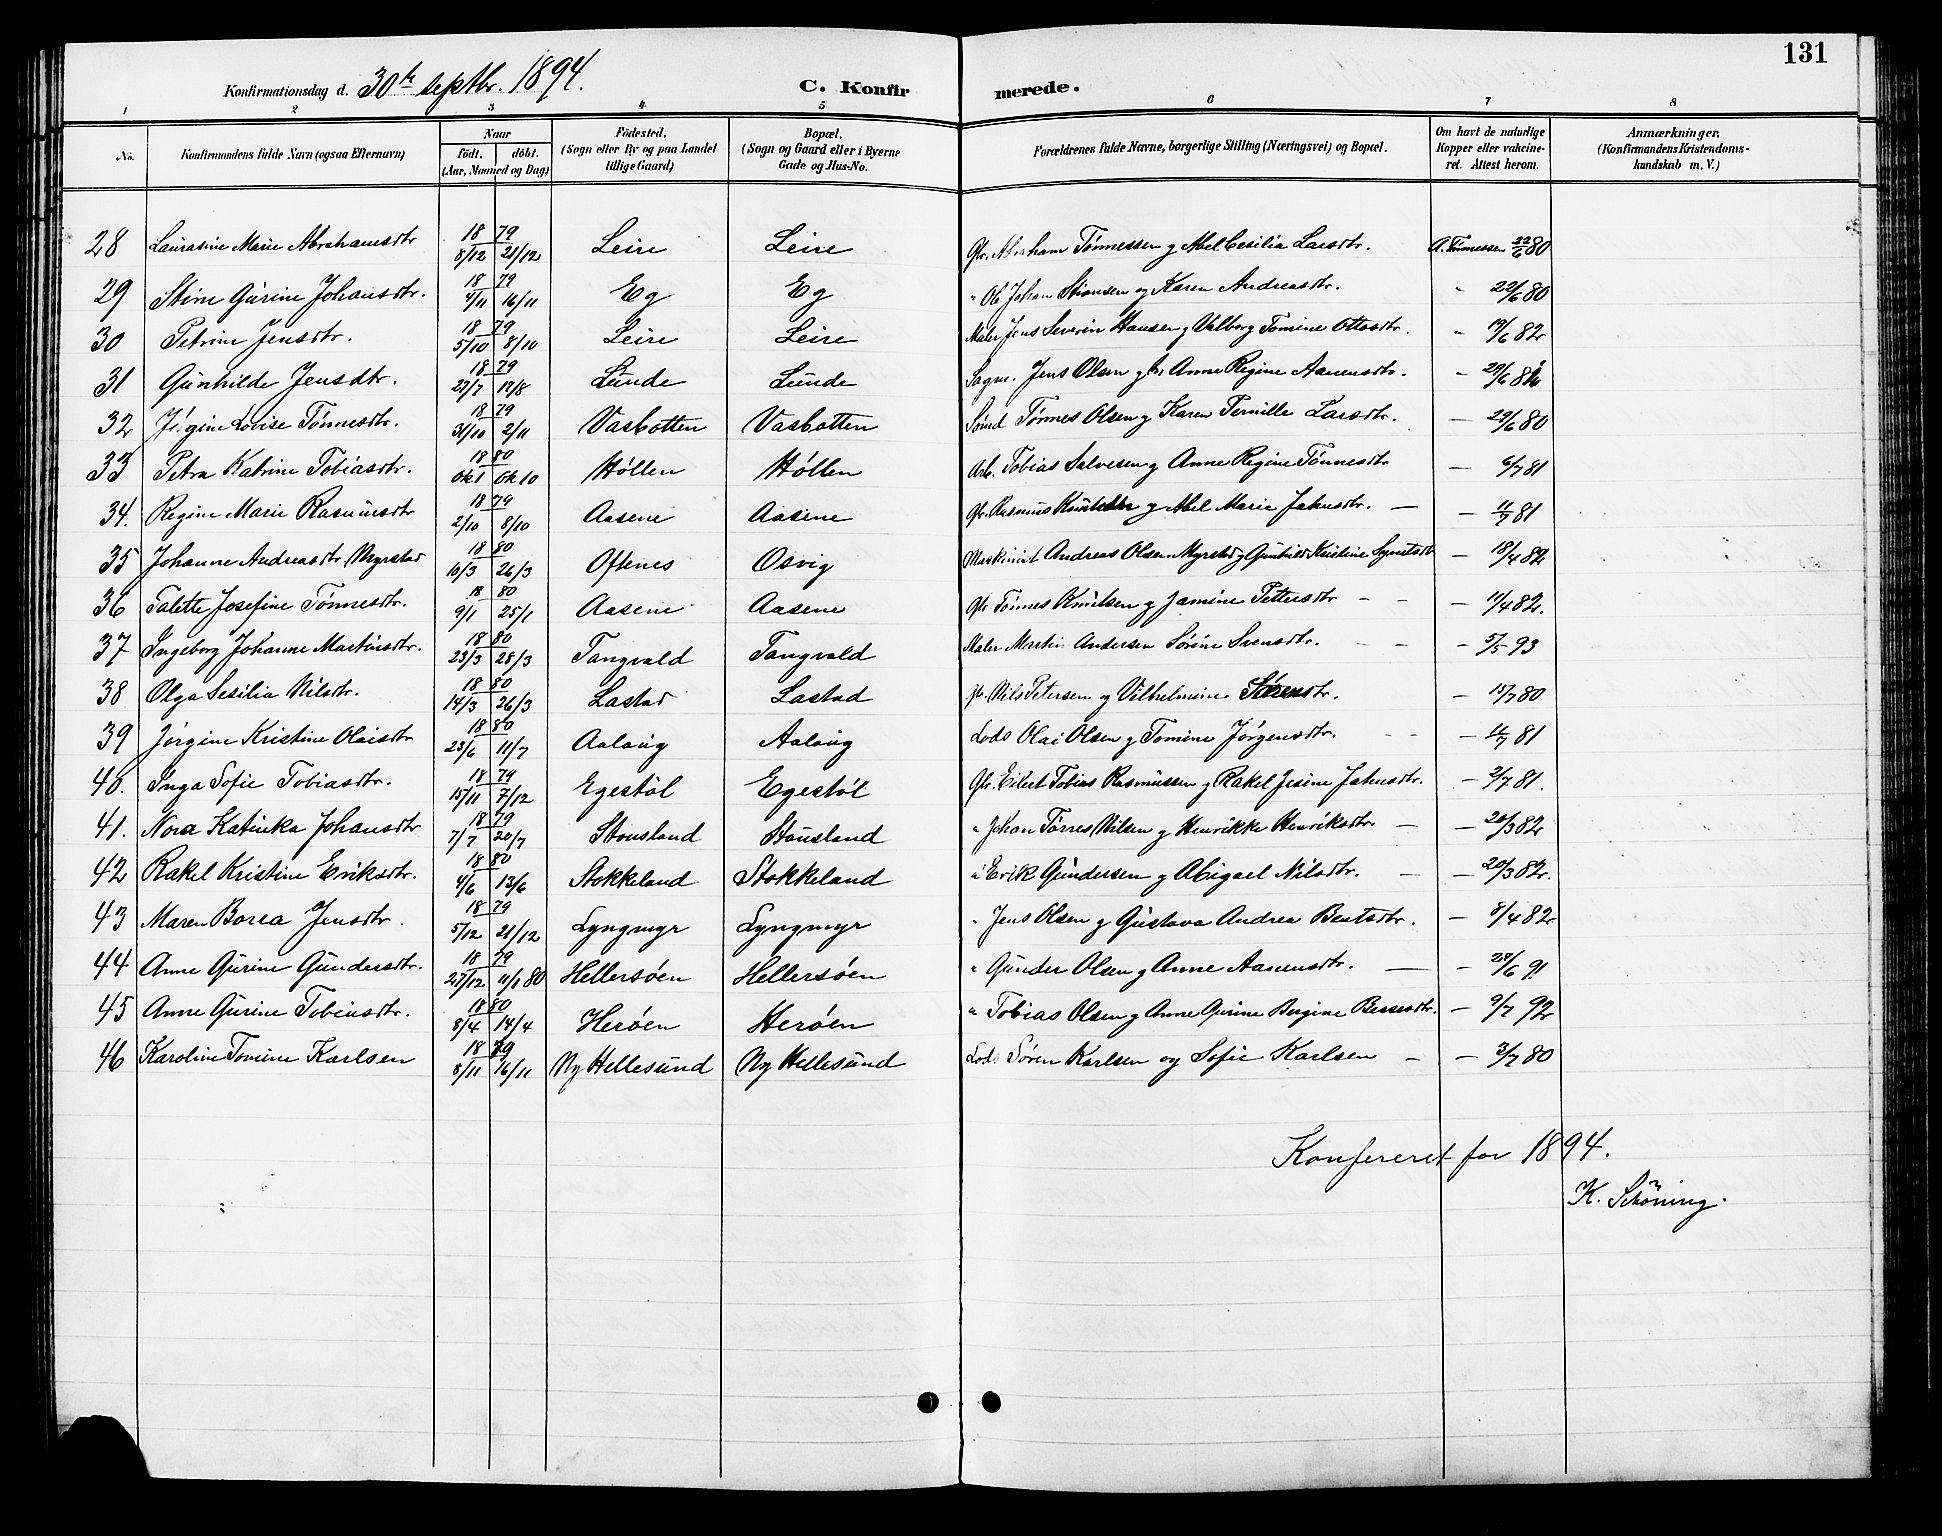 131
Konfirmationsdag d. 30te septbr. 1894. C. Konfir merede.
1 2 3 4 5 6 7 8
No. Konfirmandens fulde Navn (ogsaa Efternavn) Naar født. døbt. (Aar, Maaned og Dag) Fødested. (Sogn eller By og paa Landet tillige Gaard) Bopæl. (Sogn og Gaard eller i Byerne Gade og Hus-No. Forældrenes fulde Navne, borgerlige Stilling (Næringsvei) og Bopæl. Om havt de naturlige Kopper eller vakcineret. Attest herom. Anmærkninger. (Konfirmandens Kristendomskundskab m. V.)
28 Laurasine Marie Abrahamsdtr 1879 8/12 21/12 Leire Leire Gbr. Abraham Tønnessen og Abel Cesilia Larsdtr. A. Tønnessen 22/6 80
29 Stine Gurine Johansdtr. 1879 4/11 16/11 Eg Eg " Johan Stiansen og Karen Andreasdtr. " 22/6 80
30 Petrine Jensdtr. 1879 5/10 8/10 Leire Leire Maler Jens Severin Hansen og Valborg Tomine Ottosdtr. " 19/6 82
31 Gunhilde Jensdtr. 1879 27/7 19/8 Lunde Lunde Jens Olsen og Anne Regine Aanensdtr. - 29/6
32 Jørgine Lovise Tønnesdtr. 1879 31/10 2/11 Vasbotten Vasbotten Smed Tønnes Olsen og Karen Pernille Larsdtr. - 29/6 80
33 Petra Katrine Tobiasdtr. 1880 Høllen Høllen Arb. Tobias Salvesen og Anne Regine Tønnesdtr - 6/7 81
34. Regine Marie Rasmusdtr 1879 2/10 8/10 Aasene Aasene Gbr. Rasmus Knutsen og Abel Marie Jahnsdtr. - - 11/7 81
35 Johanne Andreasdtr Myrstad 1880 10/3 26/3 Oftenes Osvig Maskinist Andreas Olsen Myrstad og Gunhild Kristine - 18/4 82
36 Talette Josefine Tønnesdtr. 1880 9/1 25/1 Aasene Aasene Gbr Tønnes Knutsen og Jamine Pettersdtr - - - 11/4 82.
37 Ingeborg Johanne Martinsdtr. 1880 23/3 28/3 Tangvald Tangvald Maler Martin Andersen Sørine Svensdtr. - - - 5/5 93
38 Olga Sesilia Nilsdtr. 1880 14/3 26/3 Lastad Lastad Nils Petersen og Vilhelmine Sørensdtr. - 15/7 80
39 Jørgine Kristine Olaisdtr 1880 23/6 11/7 Aalaug Aalaug Lods Olai Olsen og Tomine Jørgensdtr. - - - 11/7 81
40. Inga Sofie Tobiasdtr. 1879 15/11 7/12 Egestøl Egestøl Gbr. Eilert Tobias Rasmussen og Rakel Jesine Jahnsdtr. - 2/7 81.
41. Nora Katinka Johansdtr 1879 7/7 20/7 Stousland Stausland " Johan Tørres Nilsen og Henrikke Henriksdtr - - 20/3 82
42 Rakel Kristine Eriksdtr. 1880 4/6 13/6 Stokkeland Stokkeland " Erik Gundersen og Abigael Nilsdtr. - - 20/3 82.
43 Maren Borea Jensdtr. 1879 5/12 21/12 Lyngmyr Lyngmyr " Jens Olsen og Gustava Andrea Bentsdtr. - 8/4 82
44 Anne Gurine Gundersdtr. 1879 27/12 11/1 80 Hellersøen Hellersøen " Gunder Olsen og Anne Aanensdtr. - - 28/6 91
45 Anne Gurine Tobiasdtr. 1880 8/4 14/4 Herøen Herøen " Tobias Olsen og Anne Gurine Bergine - 9/7 92
46 Karoline Tomine Karlsen 1879 8/11 16/11 Ny Hellesund Ny Hellesund Lods Søren Karlsen og Sofie Karlsen - - 3/7 80
Konfereret for 1894.
K. Schöning.